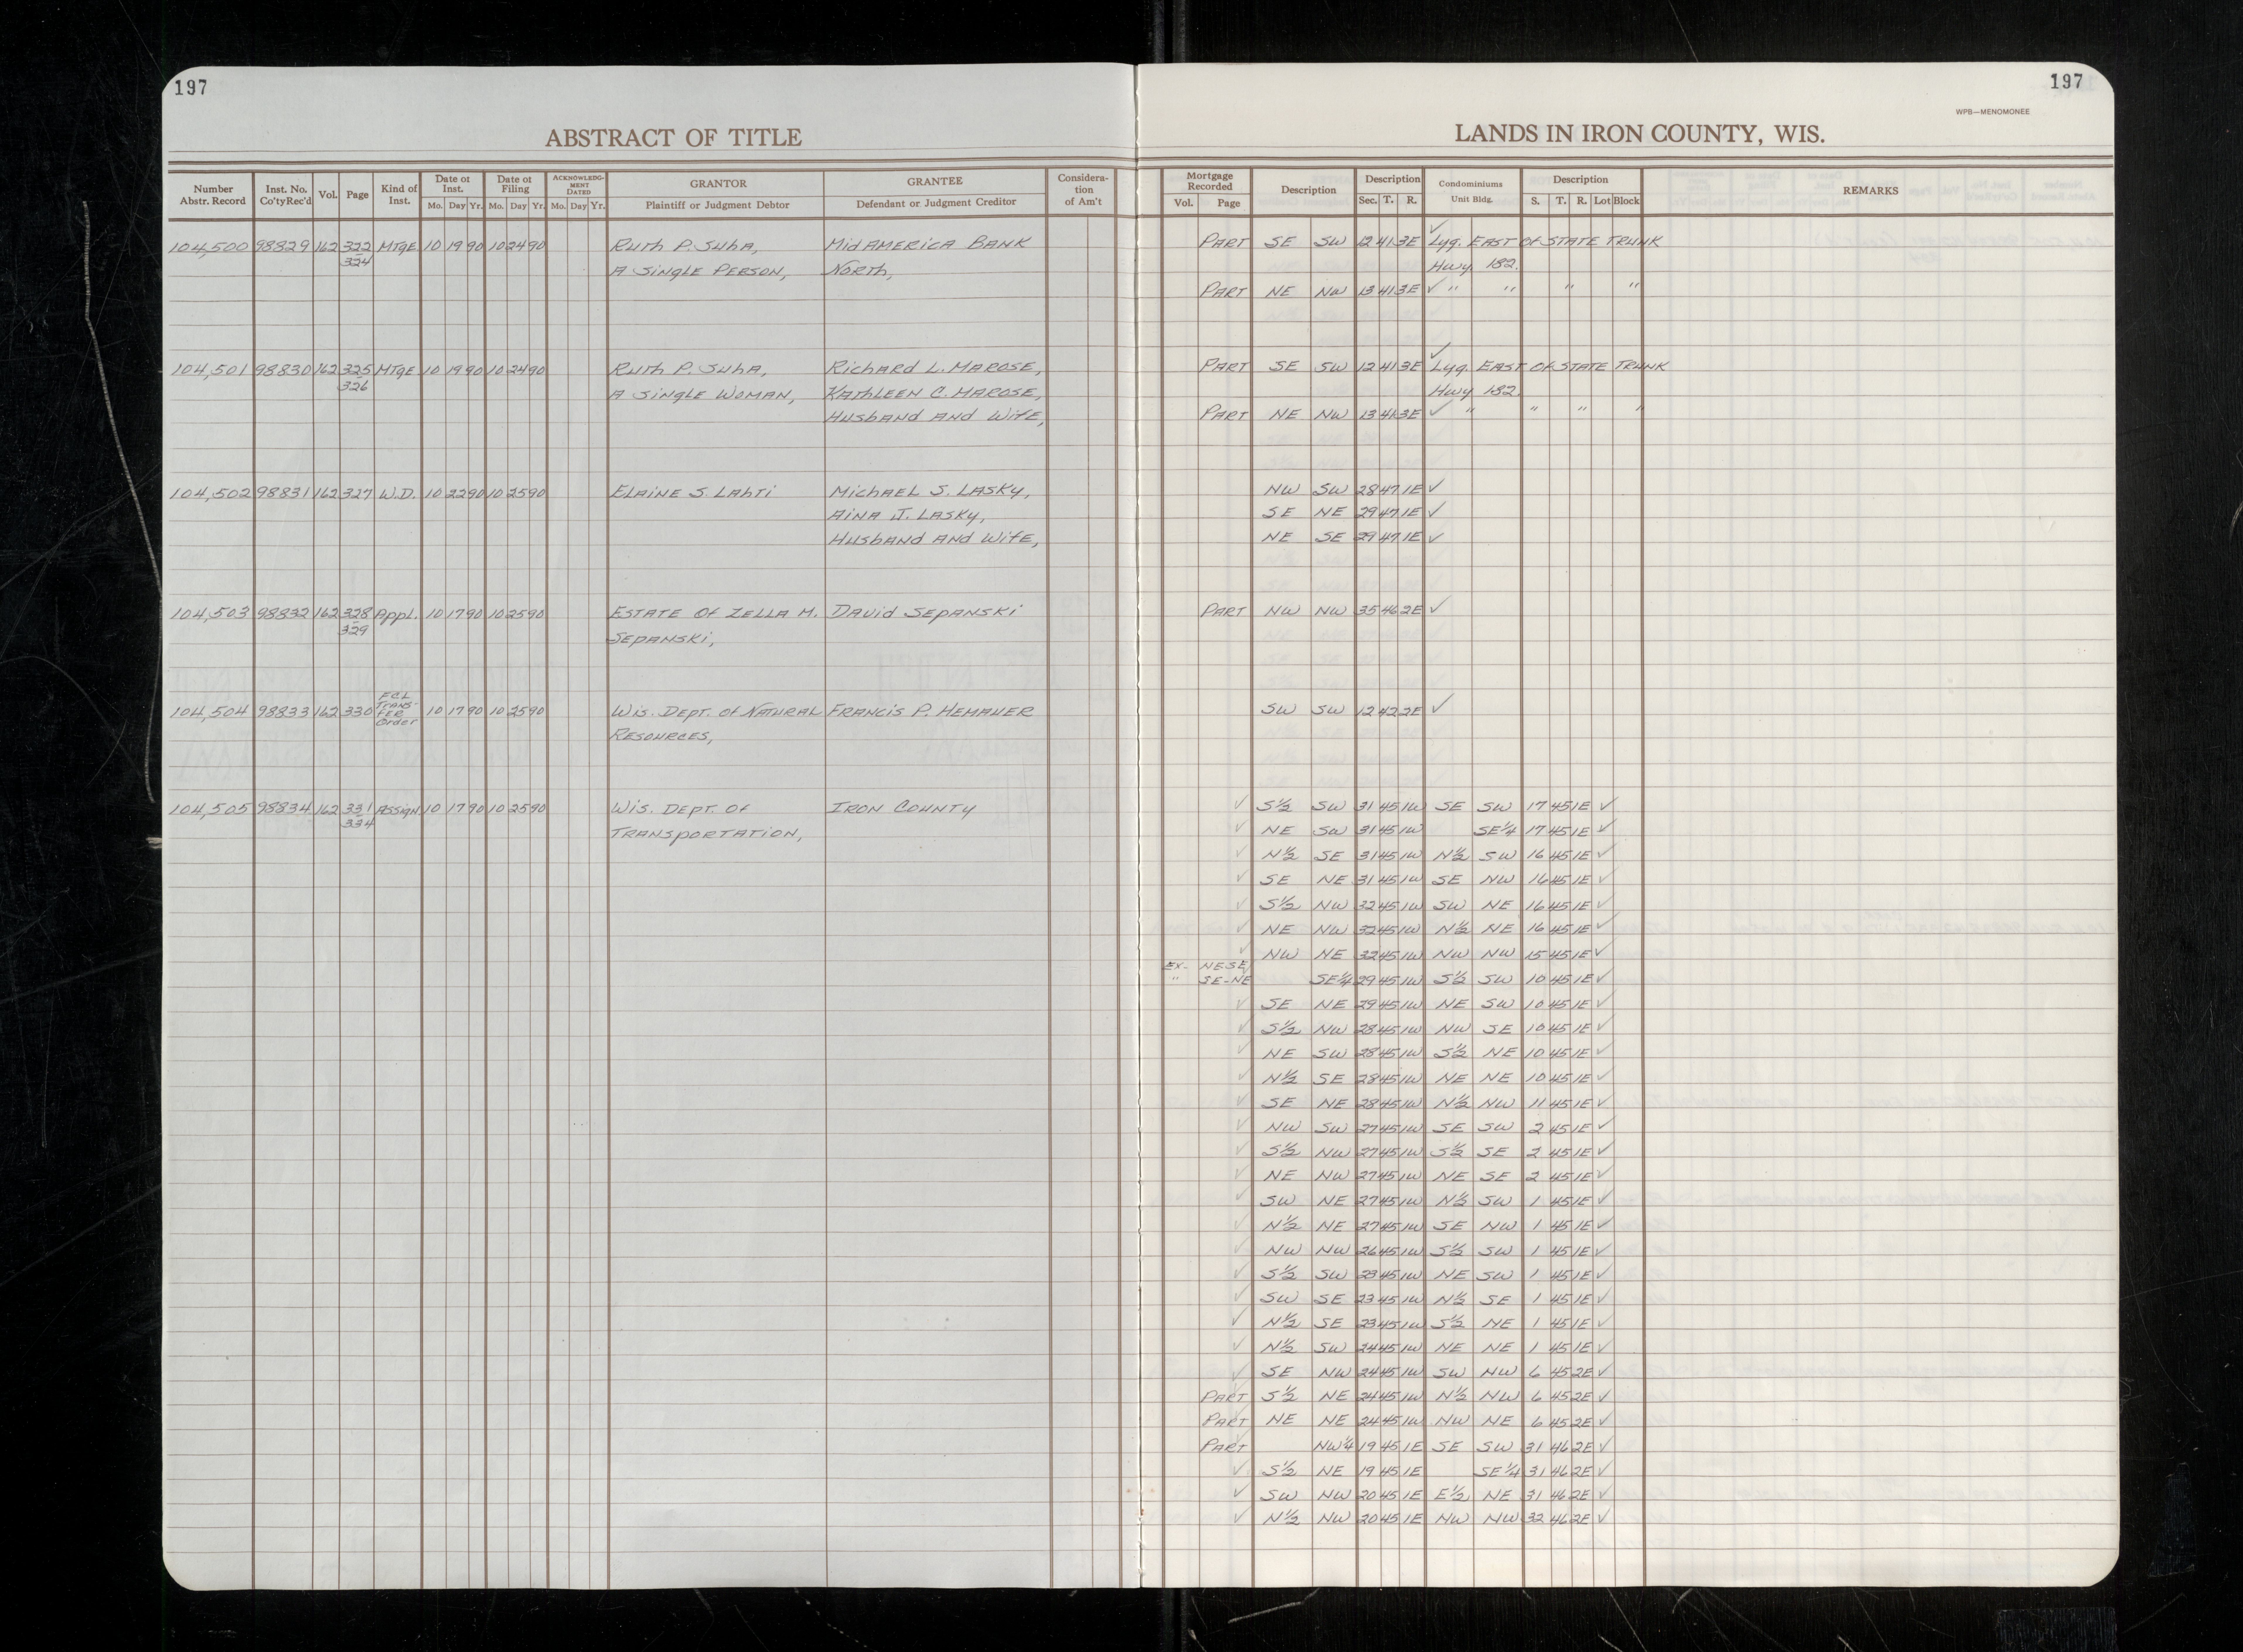 197
197
WPB—MENOMONEE
ABSTRACT OF TITLE
LANDS IN IRON COUNTY, WIS.
Number Abstr. Record | Inst. No. Co'ty Rec'd | Vol. | Page | Kind of Inst. | Date of Inst. Mo. Day Yr. | Date of Filing Mo. Day Yr. | ACKNOWLEDGMENT DATED Mo. Day Yr. | GRANTOR Plaintiff or Judgment Debtor | GRANTEE Defendant or Judgment Creditor | Consideration of Am't | Mortgage Recorded Vol. Page | Description | Description Sec. T. R. | Condominiums Unit Bldg. | Description S. T. R. Lot Block | REMARKS
104,500 98829 162 322 MTGE 10 19 90 10 24 90 Ruth P. Suha, MidAMERICA BANK PART SE SW 12 41 3E ✓ Lyg. EAST OF STATE TRUNK
324 A SINGLE PERSON, North, Hwy. 182.
PART NE NW 13 41 3E ✓ " " " "
104,501 98830 162 325 MTGE 10 19 90 10 24 90 Ruth P. Suha, Richard L. MAROSE, PART SE SW 12 41 3E ✓ Lyg. EAST OF STATE TRUNK
326 A SINGLE WOMAN, KATHLEEN C. MAROSE, Hwy 182.
HUSBAND AND WIFE, PART NE NW 13 41 3E ✓ " " " "
104,502 98831 162 327 W.D. 10 22 90 10 25 90 ELAINE S. LAHTI MICHAEL S. LASKY, NW SW 28 47 1E ✓
AINA J. LASKY, SE NE 29 47 1E ✓
HUSBAND AND WIFE, NE SE 29 47 1E ✓
104,503 98832 162 328 Appl. 10 17 90 10 25 90 ESTATE OF ZELLA M. DAVID SEPANSKI PART NW NW 35 46 2E ✓
329 SEPANSKI,
104,504 98833 162 330 FCL TRANSFER Order 10 17 90 10 25 90 Wis. DEPT. OF NATURAL FRANCIS P. HEMAUER SW SW 12 42 2E ✓
RESOURCES,
104,505 98834 162 331 ASSIGN 10 17 90 10 25 90 Wis. DEPT. OF IRON COUNTY ✓ S½ SW 31 45 1W SE SW 17 45 1E ✓
334 TRANSPORTATION, ✓ NE SW 31 45 1W SE¼ 17 45 1E ✓
✓ N½ SE 31 45 1W N½ SW 16 45 1E ✓
✓ SE NE 31 45 1W SE NW 16 45 1E ✓
✓ S½ NW 32 45 1W SW NE 16 45 1E ✓
✓ NE NW 32 45 1W N½ NE 16 45 1E ✓
✓ NW NE 32 45 1W NW NW 15 45 1E ✓
EX- NE-SE
" SE-NE SE¼ 29 45 1W S½ SW 10 45 1E ✓
✓ SE NE 29 45 1W NE SW 10 45 1E ✓
✓ S½ NW 28 45 1W NW SE 10 45 1E ✓
✓ NE SW 28 45 1W S½ NE 10 45 1E ✓
✓ N½ SE 28 45 1W NE NE 10 45 1E ✓
✓ SE NE 28 45 1W N½ NW 11 45 1E ✓
✓ NW SW 27 45 1W SE SW 2 45 1E ✓
✓ S½ NW 27 45 1W S½ SE 2 45 1E ✓
✓ NE NW 27 45 1W NE SE 2 45 1E ✓
✓ SW NE 27 45 1W N½ SW 1 45 1E ✓
✓ N½ NE 27 45 1W SE NW 1 45 1E ✓
✓ NW NW 26 45 1W S½ SW 1 45 1E ✓
✓ S½ SW 23 45 1W NE SW 1 45 1E ✓
✓ SW SE 23 45 1W N½ SE 1 45 1E ✓
✓ N½ SE 23 45 1W S½ NE 1 45 1E ✓
✓ N½ SW 24 45 1W NE NE 1 45 1E ✓
✓ SE NW 24 45 1W SW NW 6 45 2E ✓
PART S½ NE 24 45 1W N½ NW 6 45 2E ✓
PART NE NE 24 45 1W NW NE 6 45 2E ✓
PART NW¼ 19 45 1E SE SW 31 46 2E ✓
✓ S½ NE 19 45 1E SE¼ 31 46 2E ✓
✓ SW NW 20 45 1E E½ NE 31 46 2E ✓
✓ N½ NW 20 45 1E NW NW 32 46 2E ✓